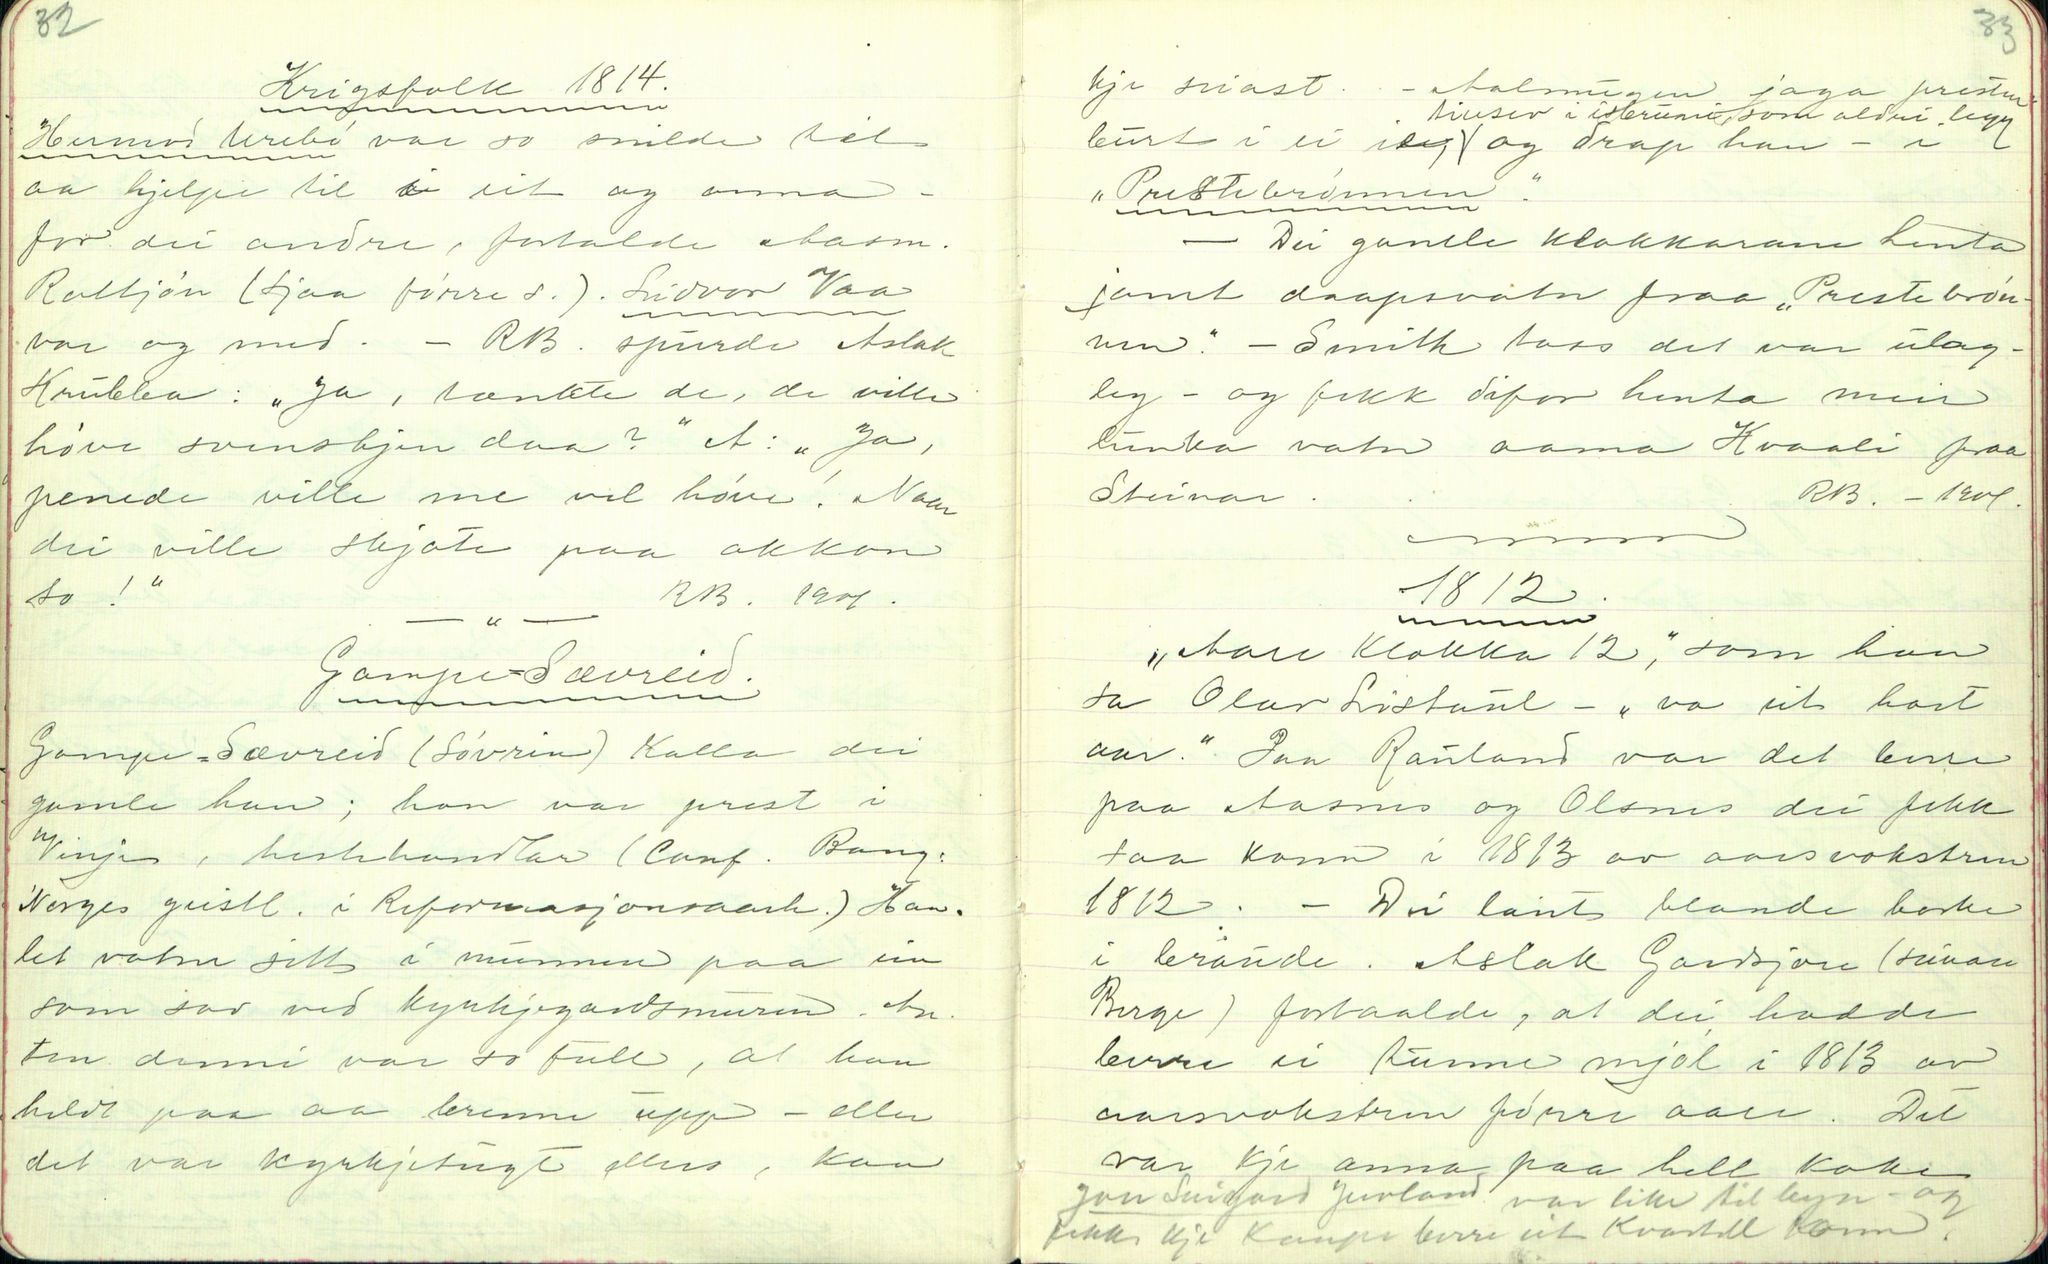 32
Krigsfolk 1814.
Hermod Urebö var so snilde til
aa hjelpe til eit og anna –
for dei andre, fortalde Aasm.
Roltjön (sjaa förre s.). Sidvor Vaa
var og med. – RB. spurde Aslak
Krubba: „Ja, tænkte de, de ville
höve svenskjen daa?" A: „Ja,
penede ville me vel höve! Naar
dei ville skjote paa okkon
so!"
RB. 1901.
— " —
Gampe-Sævreid.
Gampe-Sævreid (Sövrin) kalla dei
gamle han; han var prest i
Vinje, hestehandlar (Conf. Bang:
Norges geistl. i Reformasjonsaarh.) Han
let vatne sitt i munnen paa ein
som sov ved kyrkjegardsmuren. An-
ten denne var so full, at han
heldt paa aa brenne upp – eller
det var kyrkjetugt elles, kan
33
kje sviast. – Aalmugen jaga presten
burt i ei og drap han – i
som aldri legg
„Prestebrönnen".
— Dei gamle klokkarane henta
jamt daapsvatn fraa „Prestebrön-
nen." – Smith tass det var ulag-
leg – og fekk difor henta mein
lunka vatn aama Kvaali fraa
Steinar. RB. – 1901.
1812.
„Aare klokka 12," som han
sa Olav Listaul – „va eit hart
aar." Paa Rauland var det berre
paa Aasnes og Olsnes dei fekk
saa konn i 1813 av aarsvokstren
1812. – Dei laut blande borke
i bröude. Aslak Gardsjore (
Berge) fortaalde, at dei hadde
berre ei tunne mjöl i 1813 av
aarsvokstren förre aare. Det
var kje anna paa hell koke
Jon Juvland var like til byn – og
fekk kje kaupe berre eit kvartell konn.